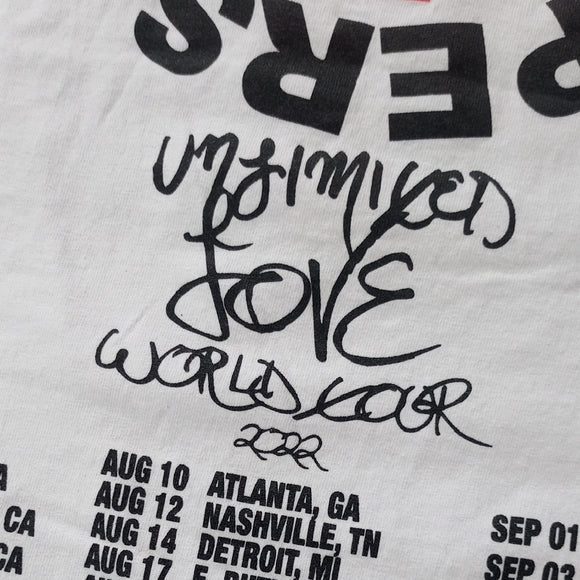 ERS
UNLIMITED
LOVE
WORLD TOUR
2022
AUG 10 ATLANTA, GA
CA AUG 12 NASHVILLE, TN SEP 01
CA AUG 14 DETROIT, MI SEP
AUG 17 E.